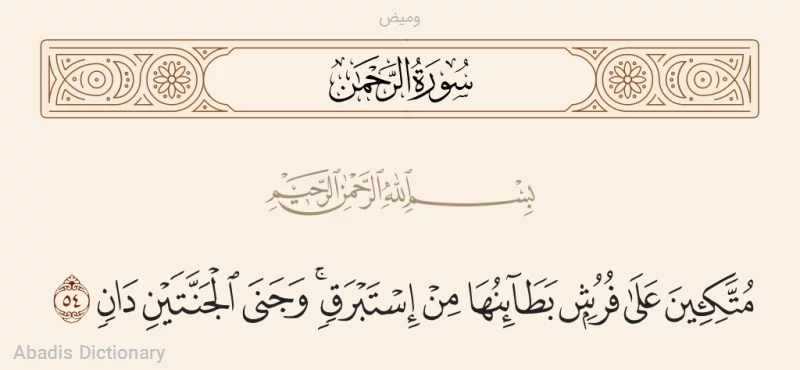 وميض
سُورَةُ الرَّحْمَٰن
بِسْمِ ٱللَّهِ ٱلرَّحْمَٰنِ ٱلرَّحِيمِ
مُتَّكِـِٔينَ عَلَىٰ فُرُشٍۭ بَطَآئِنُهَا مِنْ إِسْتَبْرَقٍۢ ۚ وَجَنَى ٱلْجَنَّتَيْنِ دَانٍۢ ٥٤
Abadis Dictionary